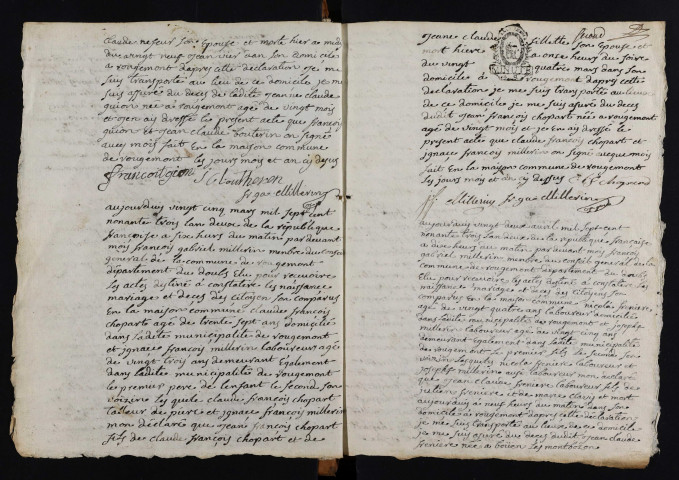 claude neseur son Epouse et morte hier a midi
du vingt neuf janvier dan son domicile
de rougemont dapres cette déclaration je me
suis transporté au lieu de ce domicile je me
suis assuré du deces de ladit jeanne claude
guion née a rougemont agé de vingt mois
et jen ai dressé le present acte que françois
guion et jean claude bouterin on signé
avec moi fait En la maison commune
de rougemont les jours mois et an cy desus
françoi gion
fr ga Millerin
aujourdhuy vingt cinq mars mil sept cent
nonante trois lan deuxe de la république
françoise a six heurs du matin par devant
moy françois gabriel millerin membre du conseil
general de la commune de rougemont
département du doubs Elu pour recevoire
les actes destiné a constatere les naissance
mariage et deces des citoyen son comparus
En la maison commune claude françois
chopart agé de trente sept ans domicilié
dans ladite municipalité de rougemont
et ignace françois millerin laboureur agé
de vingt trois ans demeurant Egalement
dans ladite municipalité de rougemont
le premier pere de lenfant le second son
voizin les quele claude françois chopart
tailleur de piere et ignace françois millerin
mon déclaré que jean françois chopart
fils de claude françois chopart et de
jeanne claude fillette son Epouse et
mort hiere a onze heurs du soire
du vingt quatre mars dans son
domicile de rougemont dapres cette
declaration je me suis transporté au lieux
de ce domicile je me suis assuré du deces
dudit jean françois chopart née a rougemont
agé de vingt mois et je En ay dressé le
present acte que claude françois chopart et
ignace françois millerin on signé avec moi
fait En la maison commune de rougemont
les jours mois et an cy dessus
Millerin fr ga Millerin
aujourdhuy vingt deux avril mil sept cent
nonante trois lan deux de la république française
a dix heurs du matin par devant moy françois
gabriel millerin membre du conseil general de la
commune de rougemont departement du doubs
Elu pour recevoire les actes destiné a constatere les
naissance mariage et deces des citoyens son
comparus En la maison commune nicolas freniere
agé de vingt quatre ans laboureur domicilié
dans ladite municipalité de rougemont et joseph
millerin laboureur agé de vingt cinq ans
demeurant Egalement dans ladite municipalité
de rougemont le premier fils le second son
voizin lesquels nicolas freniere laboureur et
joseph millerin aussi laboureur mon declaré
que jean claude freniere laboureur fils de
freniere et de marie clerc et mort
aujourdhuy a neuf heurs du matin dans son
domicile a rougemont dapres cette declaration
je me suis transporté au lieux de ce domicile
je me suis assuré du deces dudit jean claude
freniere née a montbozon